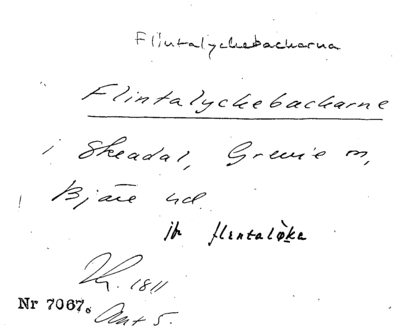 Flintalyckebackarna
Flintalyckebackarne
i Skeadal, Grevie sn,
Bjäre hd.
jfr flentaløka
1811
Nr 7067. Akt 5.